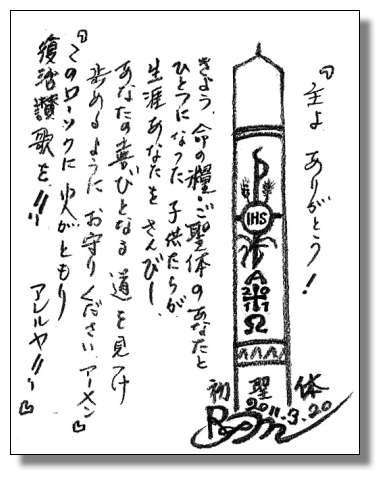 『主よ ありがとう!
きょう、命の糧・ご聖体のあなたと
ひとつになった子供たちが
生涯あなたをさんびし、
あなたの喜びとなる道を見つけ
歩めるようにお守りください、アーメン』
『このローソクに火がともり
復活讃歌を!!
アレルヤ!!』
IHS
A
20
11
Ω
初聖体
2011.3.20